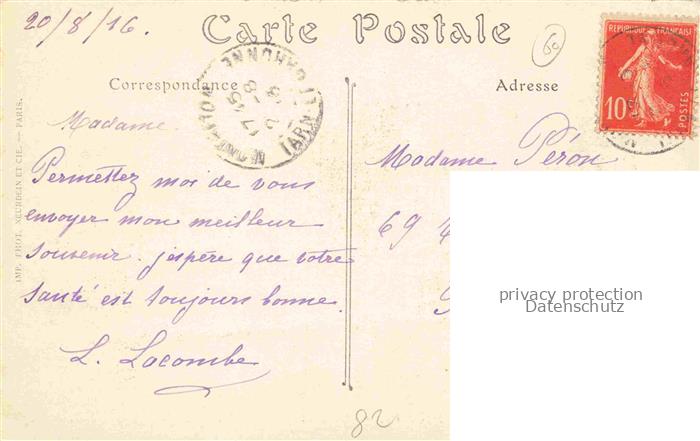 20/8/16.
Carte Postale
60
RÉPUBLIQUE FRANÇAISE
10
POSTES
Correspondance
Adresse
TARN-ET-GARONNE
17-15
Madame.
Madame Péron
69
Permettez moi de vous
envoyer mon meilleur
souvenir. j'espère que votre
santé est toujours bonne.
L. Lacombe
IMP. PHOT. NEURDEIN ET CIE. — PARIS.
privacy protection
Datenschutz
82